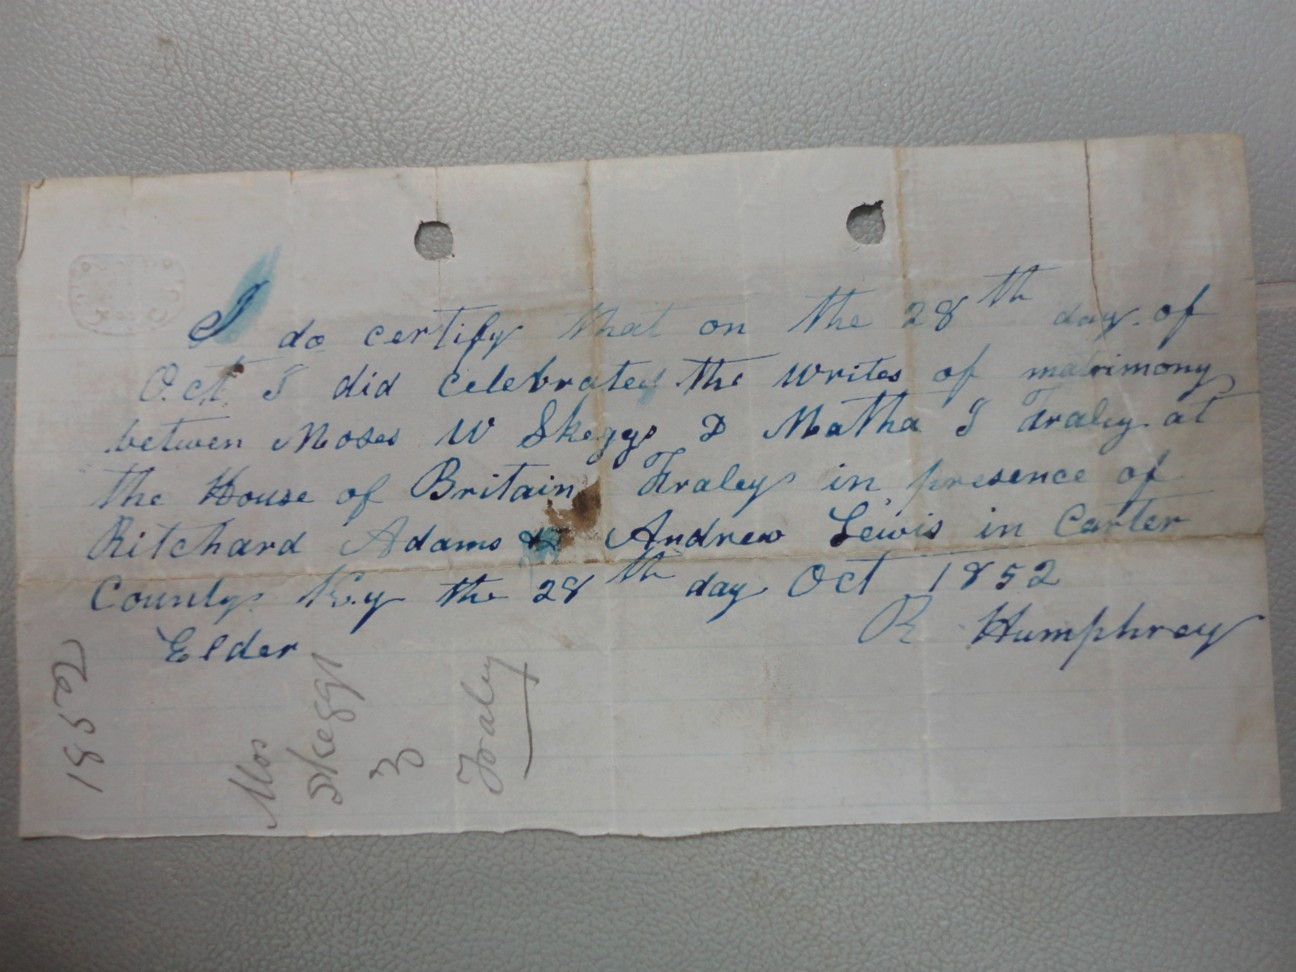 I do certify that on the 28th day of
Oct I did celebrated the writes of matrimony
betwen Moses W Skeggs & Matha J Fraley at
the House of Britain Fraley in presence of
Ritchard Adams & Andrew Lewis in Carter
County Ky the 28th day Oct 1852
Elder R Humphrey
1852
Mos
Skeggs
&
Fraley